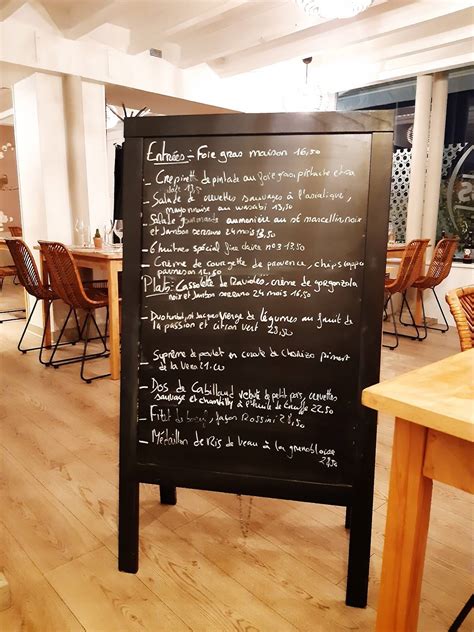 Entrées:- Foie gras maison 16,50
- Crepinette de pintade au foie gras, pistache et sa
13,50
- Salade de crevettes sauvages à l'asiatique,
mayonnaise au wasabi 13,50
- Salade gourmande St marcellin, noix
et Jambon serrano 24 mois
- 6 huitres spécial fine claire n°3 13,50
- Crème de courgette de provence, chips
parmesan 12,50
Plats:- Cassolette de Ravioles, crème de gorgonzola
noix et Jambon serrano 24 mois 16,50
- Duo turbot, st Jacques vierge de légumes au fruit de
la passion et citron vert 23,50
- Suprême de poulet en croute de chorizo piment
de la vera
- Dos de Cabillaud velouté de petit pois, crevettes
sauvage et chantilly à l'huile de 22,50
- Filet de boeuf, façon Rossini
- Médaillon de Ris de veau à la grenobloise
24,50